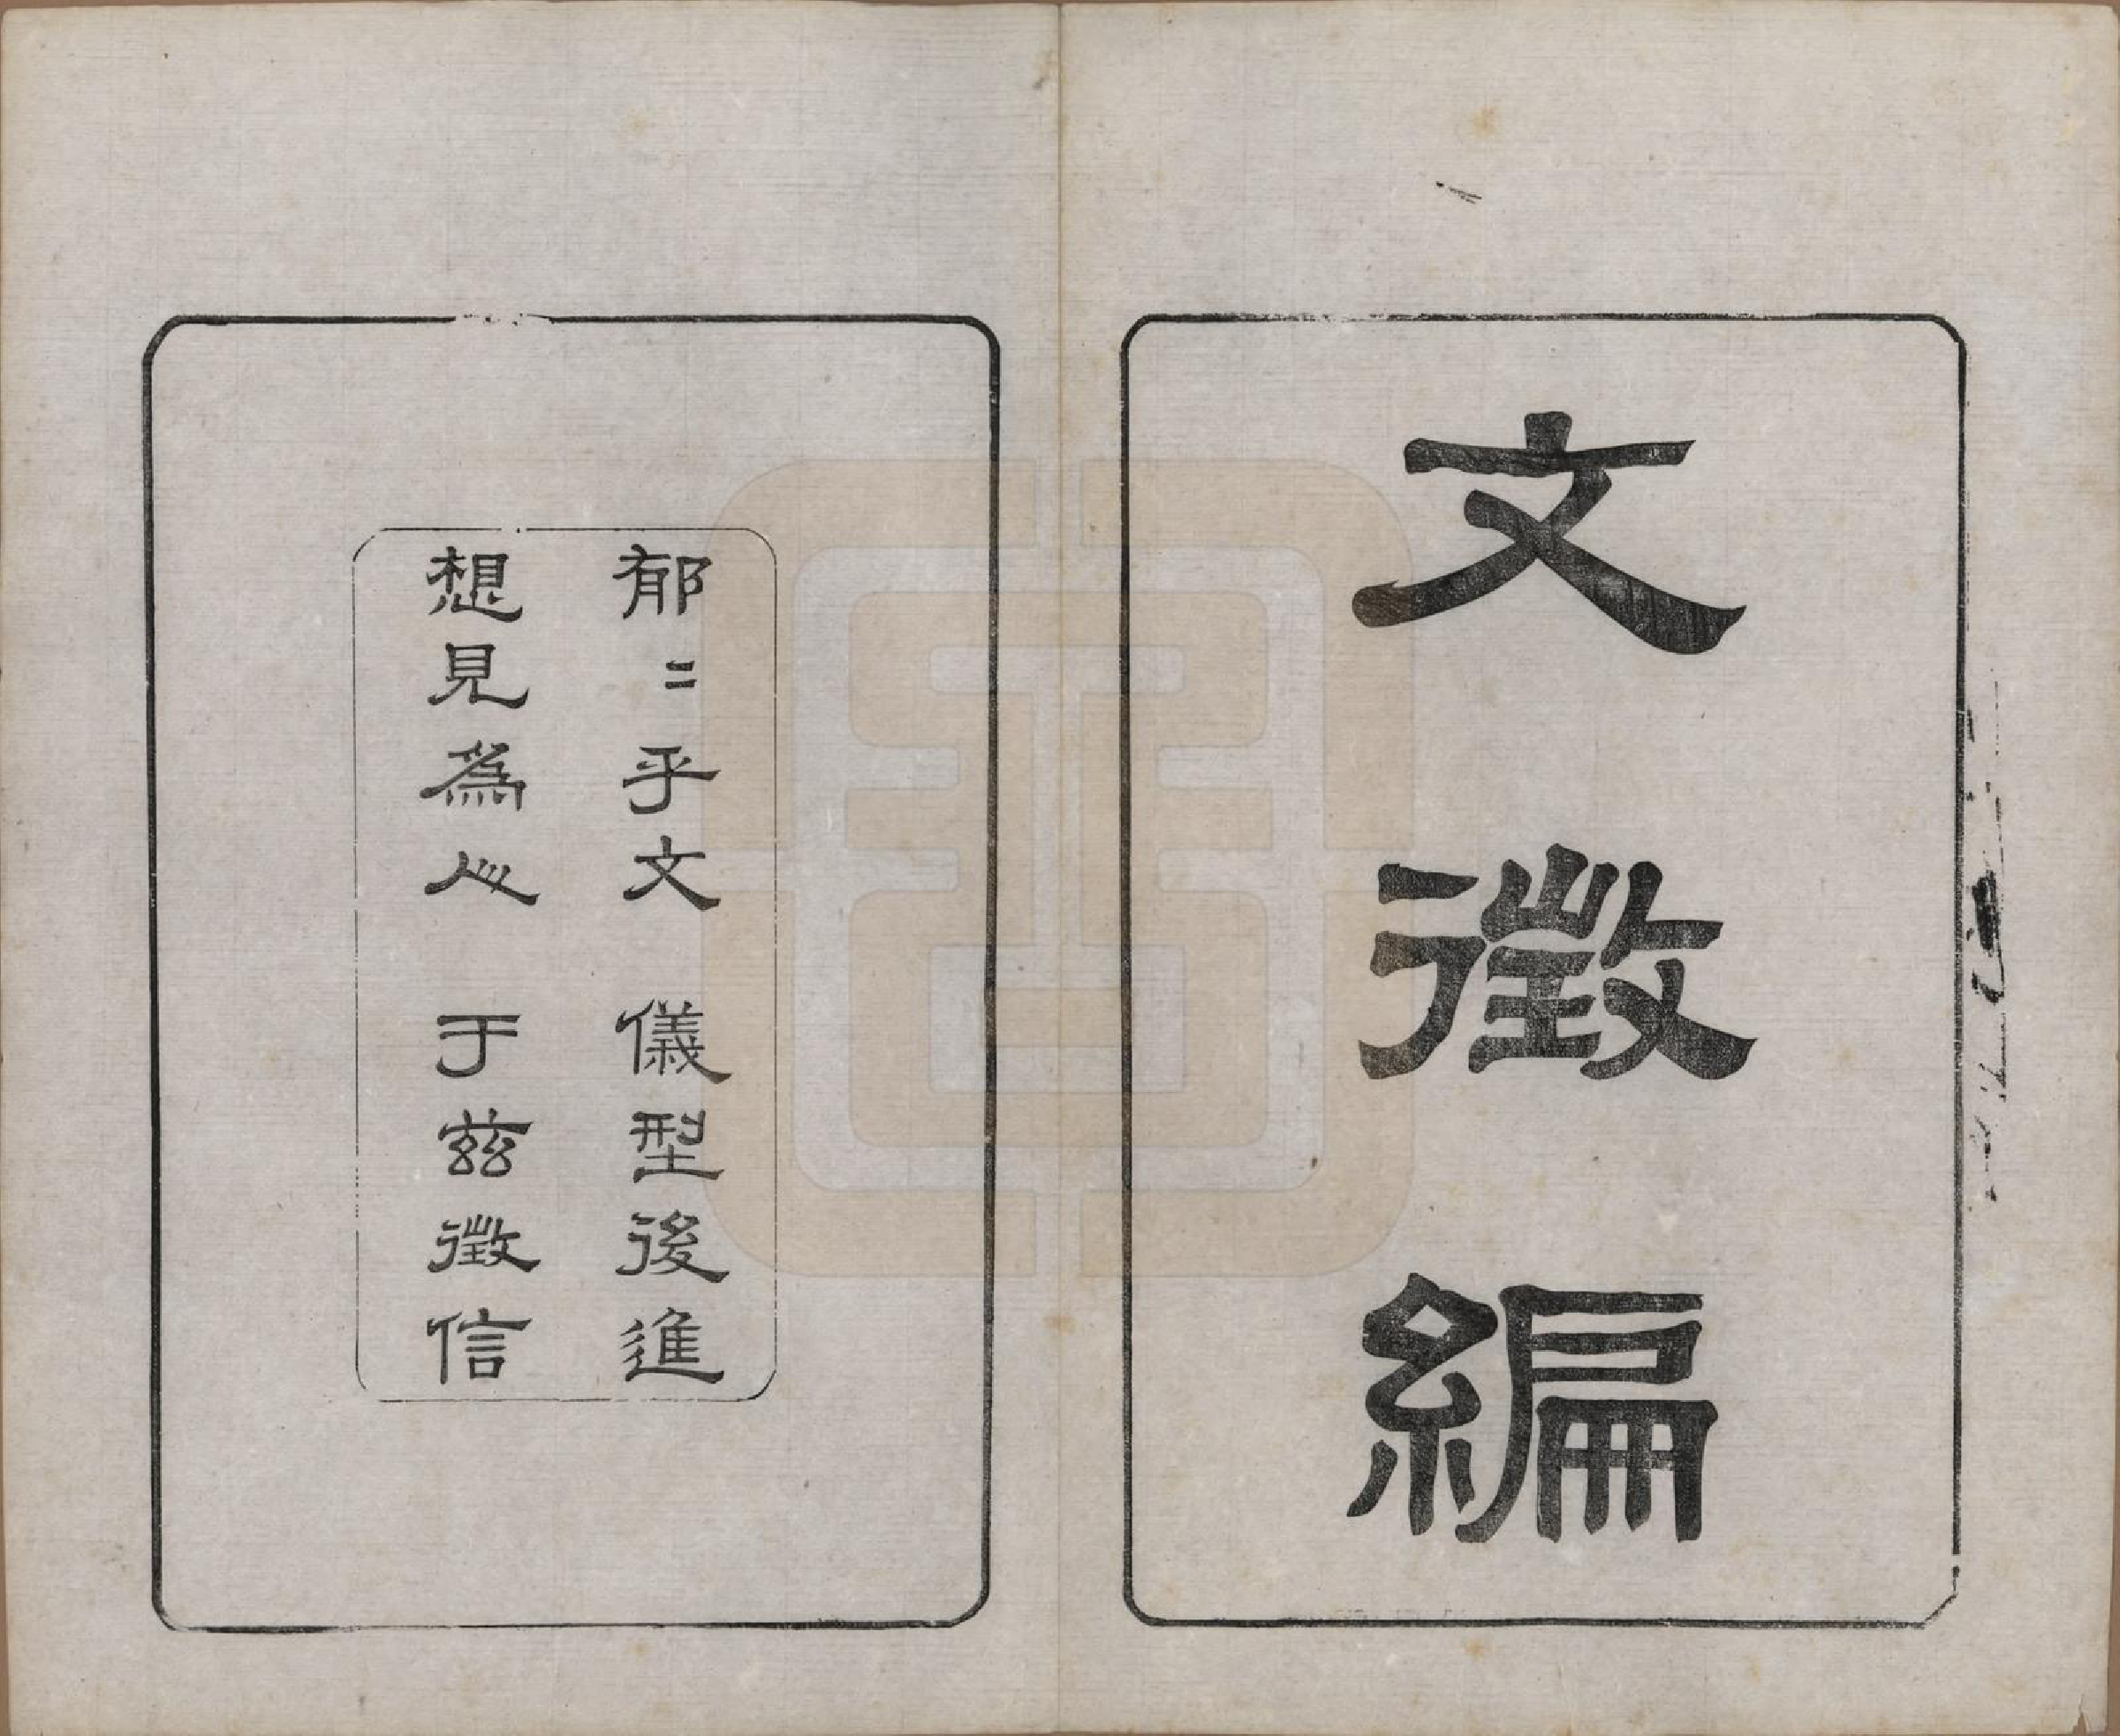 文徵編
郁〻乎文 儀型後進
想見為心 于茲徵信